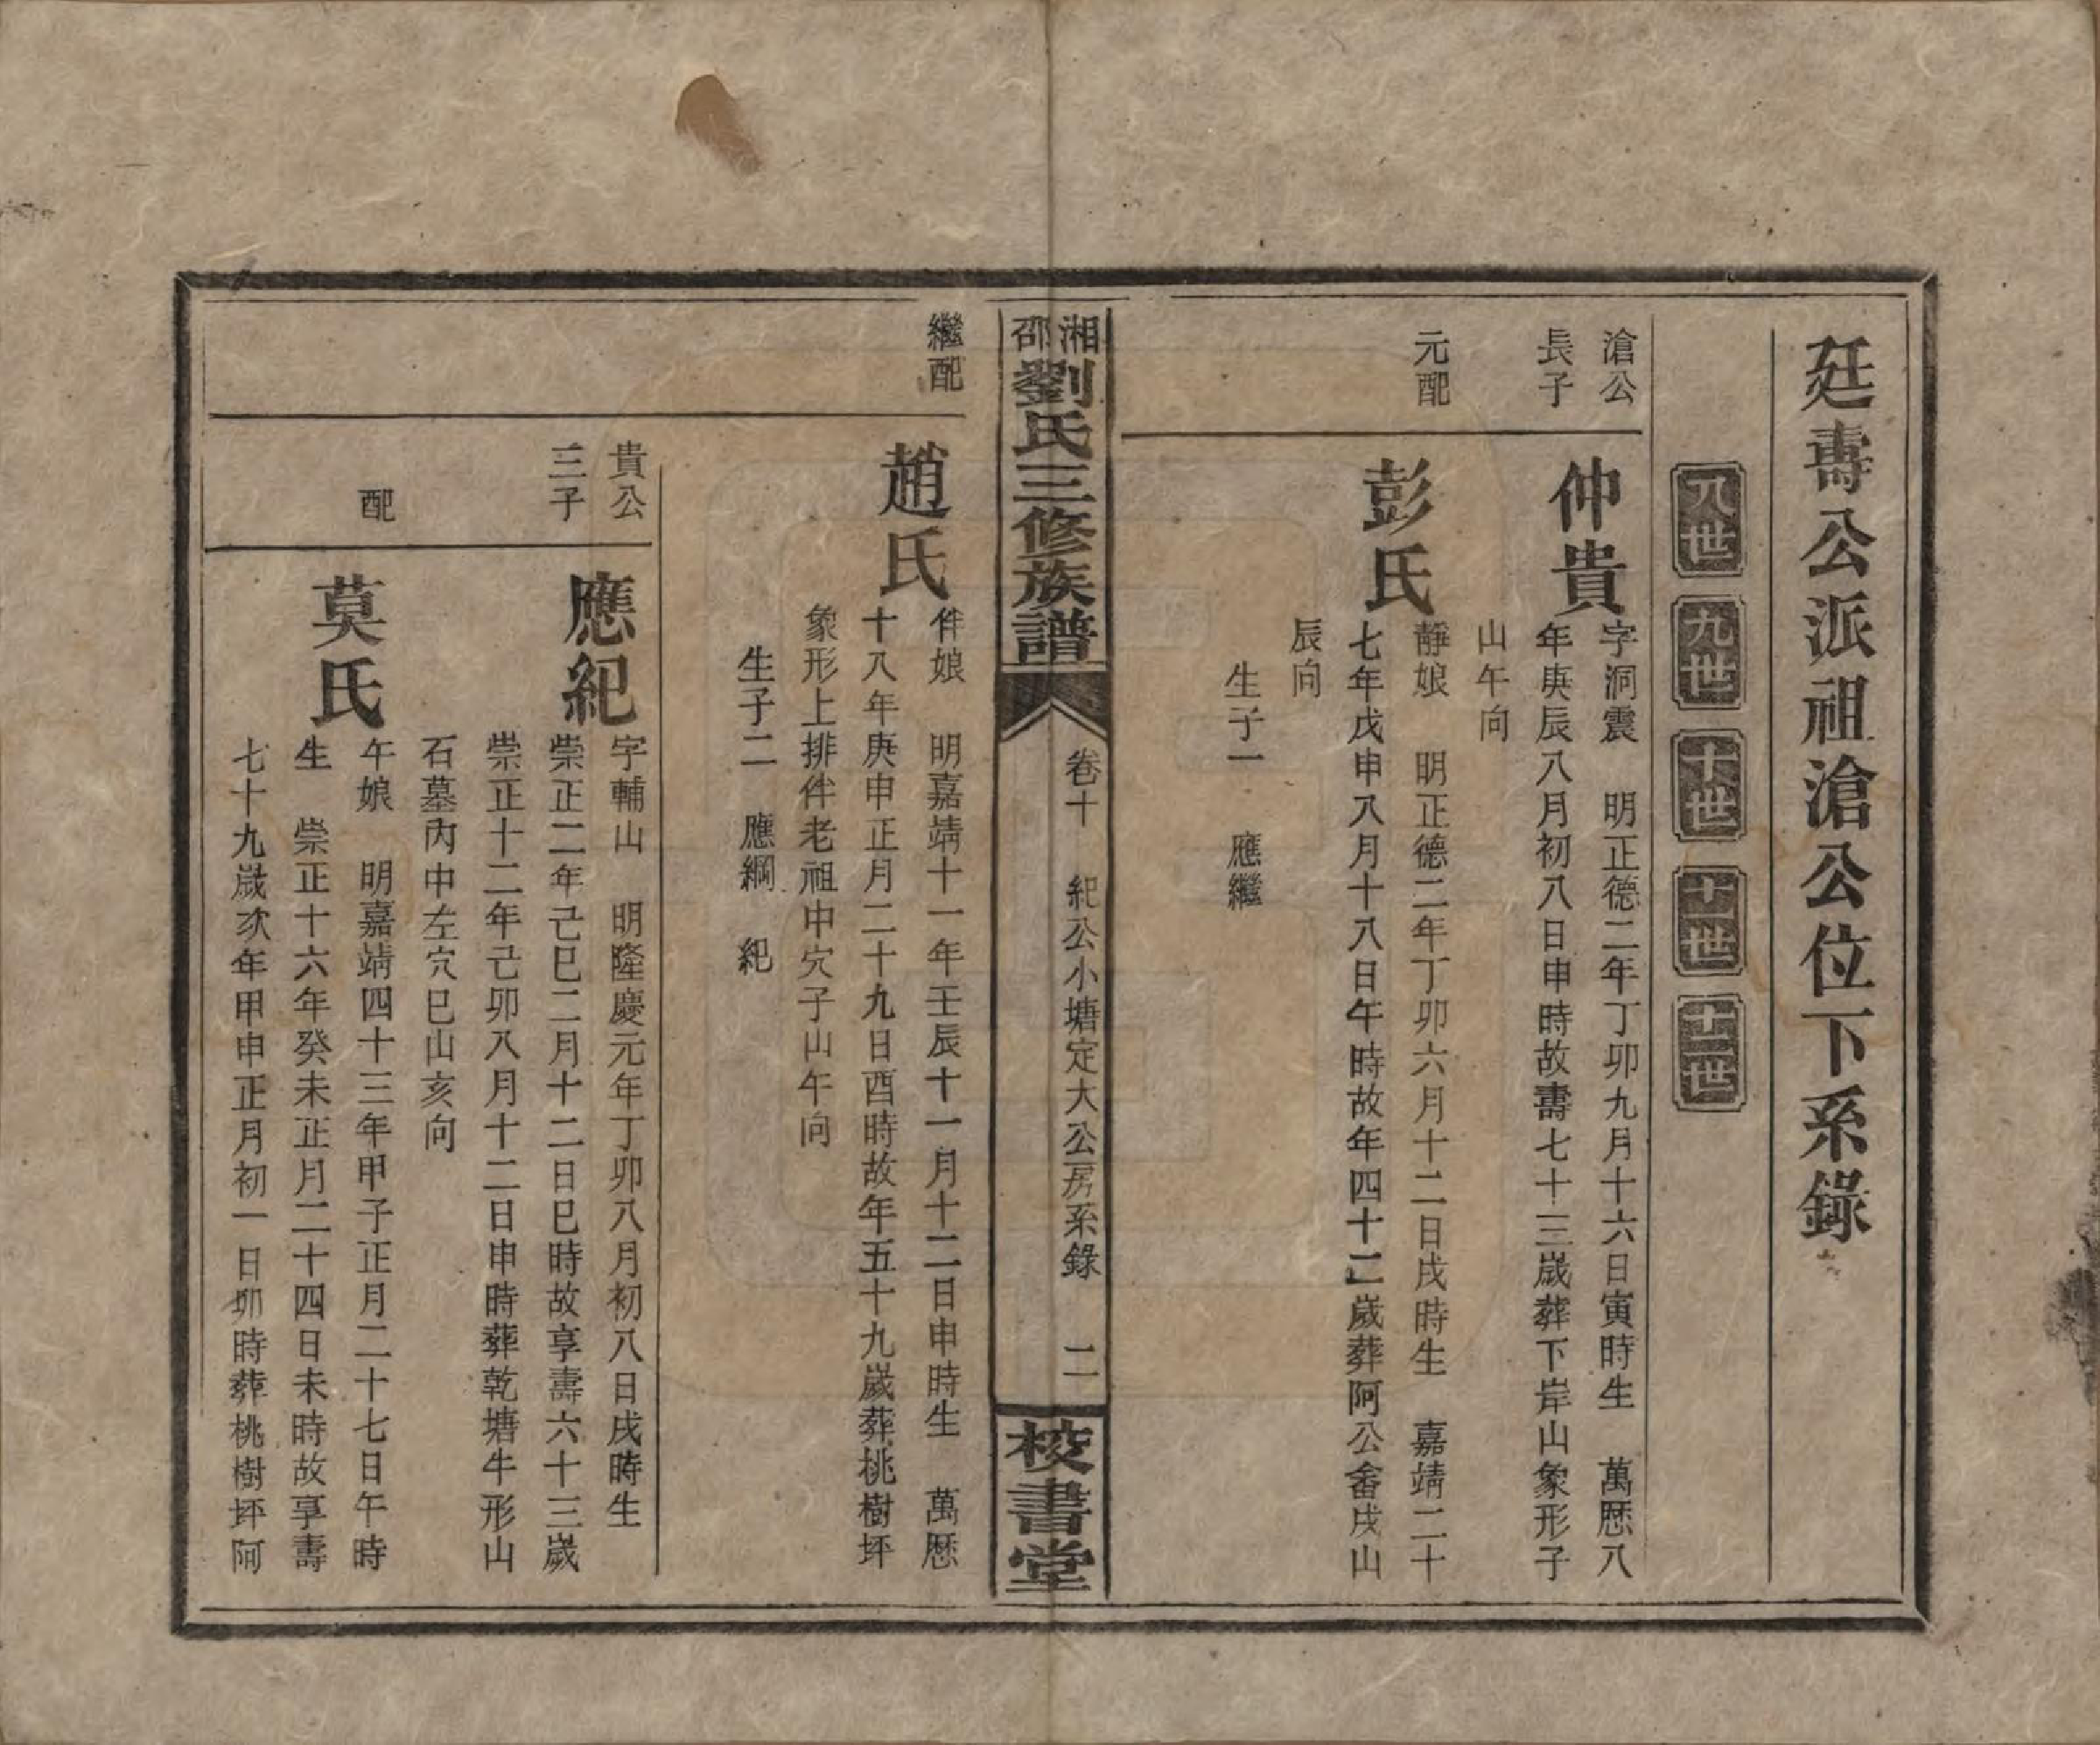 廷壽公派祖滄公位下系錄
八世 九世 十世 十一世 十二世
滄公
長子
仲貴
字洞震 明正德二年丁卯九月十六日寅時生 萬歷八
年庚辰八月初八日申時故壽七十三歲葬下岸山象形子
山午向
元配
彭氏
靜娘 明正德二年丁卯六月十二日戌時生 嘉靖二十
七年戊申八月十八日午時故年四十二歲葬阿公畬戌山
辰向
生子一 應繼
湘邵劉氏三修族譜
卷十 紀公小塘定大公房系錄 二
校書堂
繼配
趙氏
伴娘 明嘉靖十一年壬辰十一月十二日申時生 萬歷
十八年庚申正月二十九日酉時故年五十九歲葬桃樹坪
象形上排伴老祖中穴子山午向
生子二 應綱 紀
貴公
三子
應紀
字輔山 明隆慶元年丁卯八月初八日戌時生
崇正二年己巳二月十二日巳時故享壽六十三歲
崇正十二年己卯八月十二日申時葬乾塘牛形山
石墓內中左穴巳山亥向
配
莫氏
午娘 明嘉靖四十三年甲子正月二十七日午時
生 崇正十六年癸未正月二十四日未時故享壽
七十九歲次年甲申正月初一日卯時葬桃樹坪阿